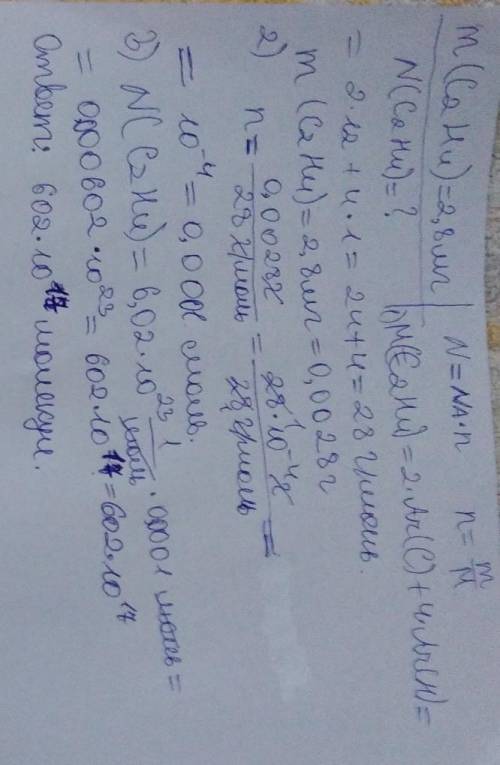 m(C2H4)=2,8мг | N=NA·n n=m/M
N(C2H4)=? | 1) M(C2H4)=2·Ar(C)+4·Ar(H)=
=2·12+4·1=24+4=28 г/моль.
m(C2H4)=2,8мг=0,0028г
2) n=0,0028г/28 г/моль=28·10⁻⁴г/28 г/моль=
=10⁻⁴=0,0001 моль.
3) N(C2H4)=6,02·10²³ 1/моль·0,0001 моль=
=0,000602·10²³=602·10¹⁷=602·10¹⁷
Ответ: 602·10¹⁷ молекул.